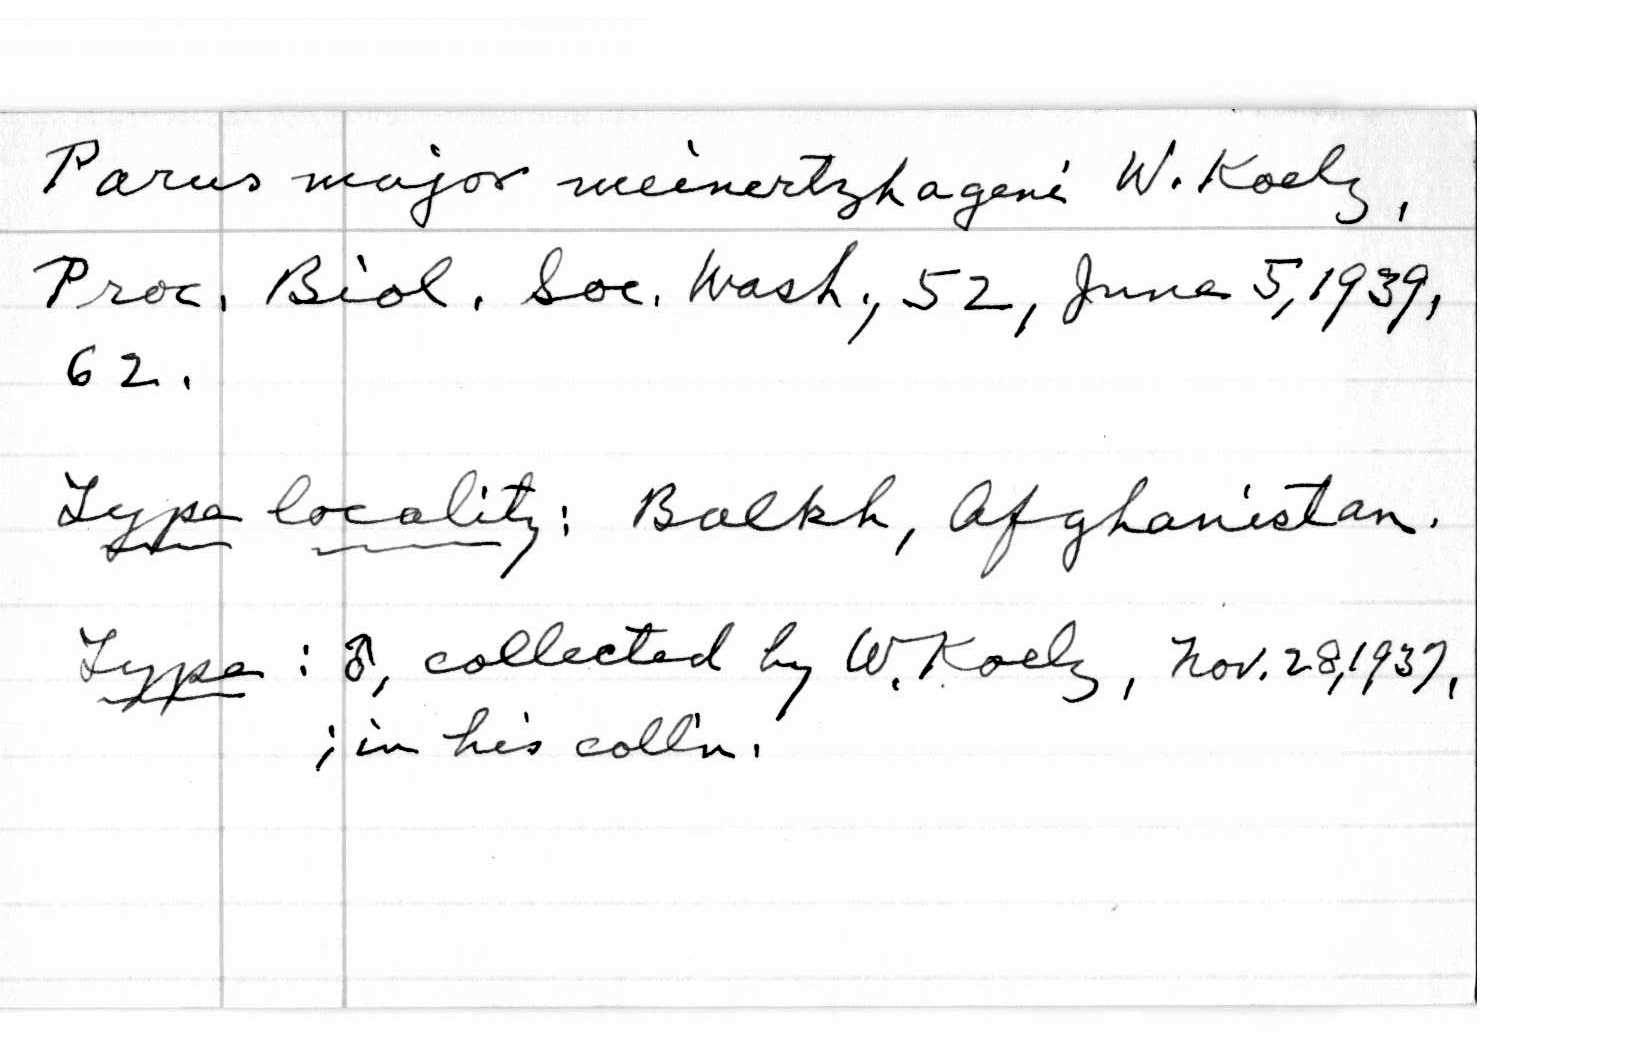 Parus major meinertzhageni W. Koelz,
Proc. Biol. Soc. Wash., 52, June 5, 1939,
62.
Type locality: Balkh, Afghanistan.
Type: ♂, collected by W. Koelz, Nov. 28, 1937,
; in his coll'n.